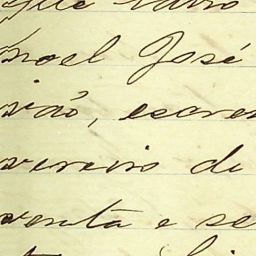 noel José
vão, escre
vereiro de
venta e se